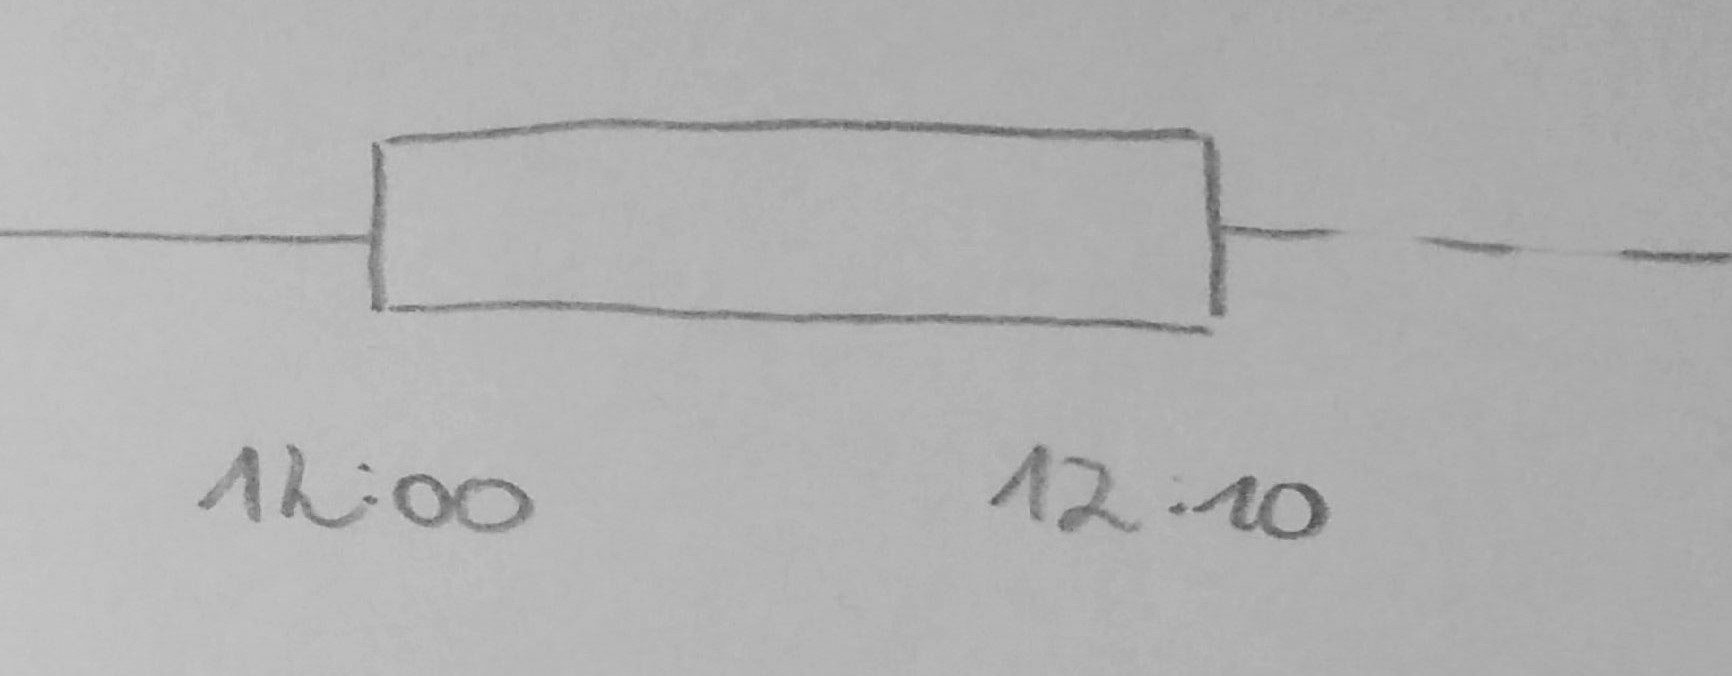 12:00 12:10